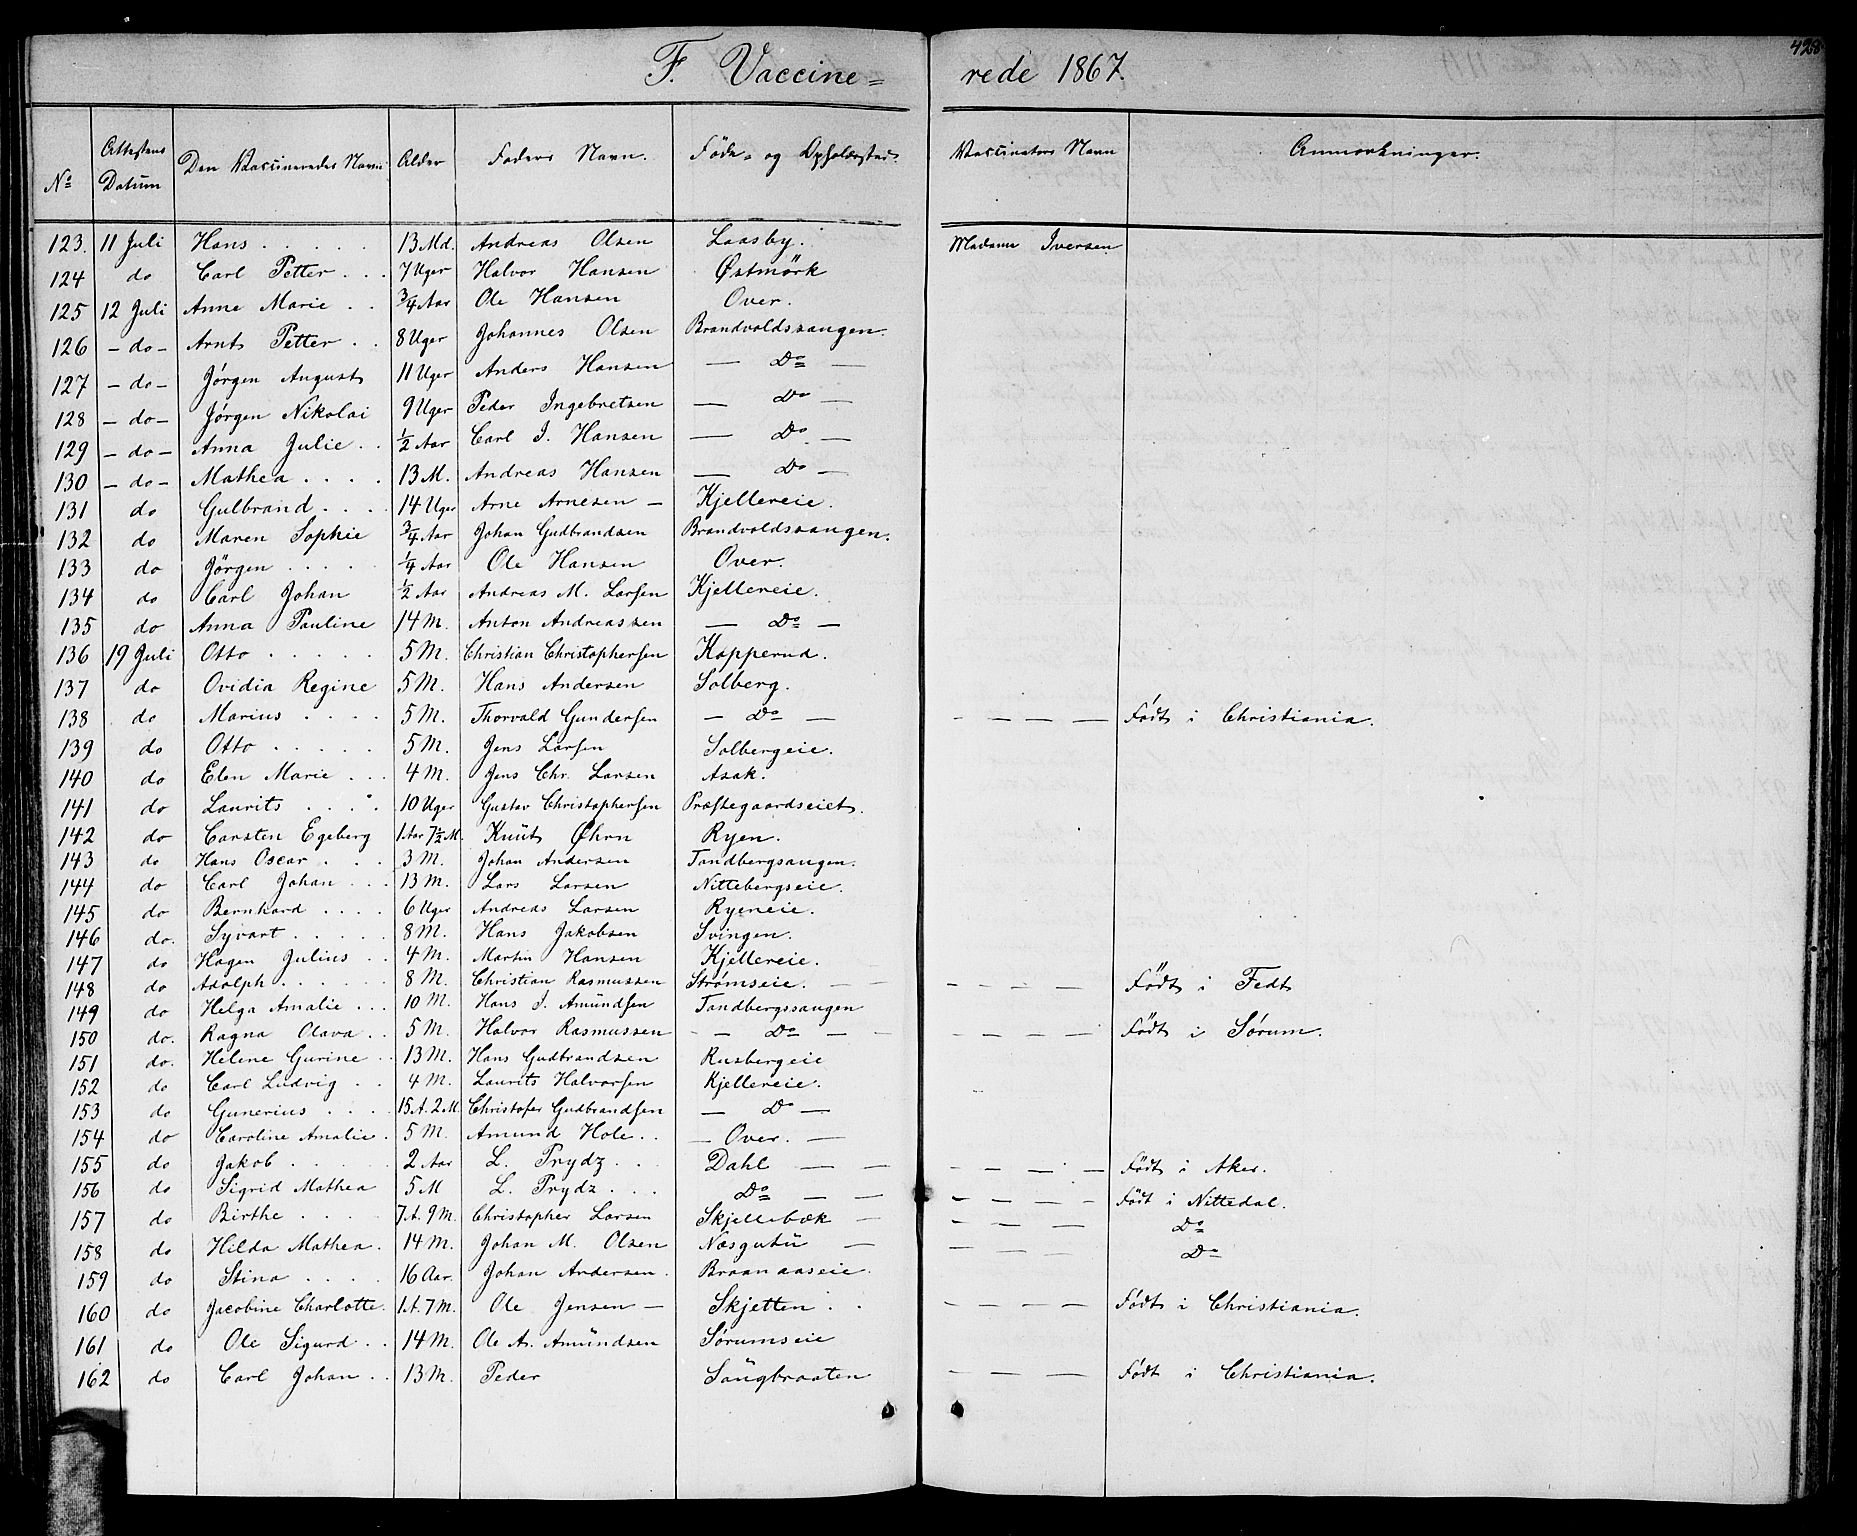 428
F. Vaccine= rede 1867.
No Attestens Datum Den Vaccineredes Navn Alder Faders Navn. Føde- og Opholdssted. Vaccinators Navn Anmærkninger.
123. 11 Juli Hans . . . . . 13 Md. Andreas Olsen Laasby. Madame Iversen.
124 do Carl Petter . . . 7 Uger Halvor Hansen Østmörk
125 12 Juli Anne Marie . . 3/4 Aar Ole Hansen Over.
126 - do - Arnt Petter . . 8 Uger Johannes Olsen Brandvoldssangen.
127 - do - Jörgen August 11 Uger Anders Hansen — Do —
128 - do - Jörgen Nikolai 9 Uger Peder Ingebretsen — Do —
129 - do - Anna Julie . . 1/2 Aar Carl J. Hansen — Do —
130 - do - Mathea . . . . 13 M. Andreas Hansen — Do —
131 do Gulbrand . . . . 14 Uger Arne Arnesen — Kjellereie.
132 do Maren Sophie 3/4 Aar Johan Gudbrandsen Brandvoldssangen.
133 do Jörgen . . . . . 1/4 Aar Ole Hansen Over.
134 do Carl Johan 1/2 Aar Andreas M. Larsen Kjellereie.
135 do Anna Pauline 14 M. Anton Andreassen — Do —
136 19 Juli Otto . . . . . 5 M. Christian Christophersen Kopperud.
137 do Ovidia Regine 5 M. Hans Andersen Solberg.
138 do Marius . . . . 5 M. Thorvald Gundersen — Do — — — — — Født i Christiania.
139 do Otto . . . . . 5 M. Jens Larsen Solbergeie.
140 do Elen Marie . . . 4 M. Jens Chr. Larsen Asak.
141 do Laurits . . . . 10 Uger Gustav Christophersen Præstegaardseiet.
142 do Carsten Egeberg 1 Aar 7 1/2 M. Knüt Øhrn Ryen.
143 do Hans Oscar . . . 3 M. Johan Andersen Tandbergsangen.
144 do Carl Johan . . . 13 M. Lars Larsen Nittebergseie.
145 do Bernhard . . . . 6 Uger Andreas Larsen Ryeneie.
146 do. Syvart . . . . . 8 M. Hans Jakobsen Svingen.
147 do Hagen Julius . . 4 M. Martin Hansen Kjellereie.
148 do Adolph . . . . . . 8 M. Christian Rasmussen Strømseie. — — — — — — Født i Fedt
149 do Helga Amalie . . . 10 M. Hans J. Amündsen Tandbergssangen
150 do. Ragna Olava . . 5 M. Halvor Rasmussen — Do — — — — — — Født i Sørum.
151 do. Helene Gurine . . 13 M. Hans Gudbrandsen Rusbergeie
152 do Carl Ludvig . . 4 M. Laurits Halvorsen Kjellereie.
153 do Gunerius . . . . 15 A. 2 M. Christofer Gudbrandsen — Do —
154 do Caroline Amalie . 5 M. Amund Hole . . — Over. —
155 do Jakob . . . . . 2 Aar L. Prydz . . . Dahl — — — — — — Født i Aker.
156 do Sigrid Mathea 5 M L. Prydz . . . Do — — — — — — Født i Nittedal.
157 do Birthe . . . . . 7 A. 9 M. Christopher Larsen Skjellebæk — — — — — Do
158 do Hilda Mathea . 14 M. Johan M. Olsen Næsgutü — — — — — Do
159 do Stina . . . . 16 Aar. Johan Andersen . Braanaaseie.
160 do Jacobine Charlotte . 1 A. 7 M. Ole Jensen — Skjetten . . — — — — Født i Christiania.
161 do Ole Sigurd . . 14 M. Ole A. Amündsen Sørumseie
162 do Carl Johan . . 13 M. Peder Saugbraaten — — — — Født i Christiania.